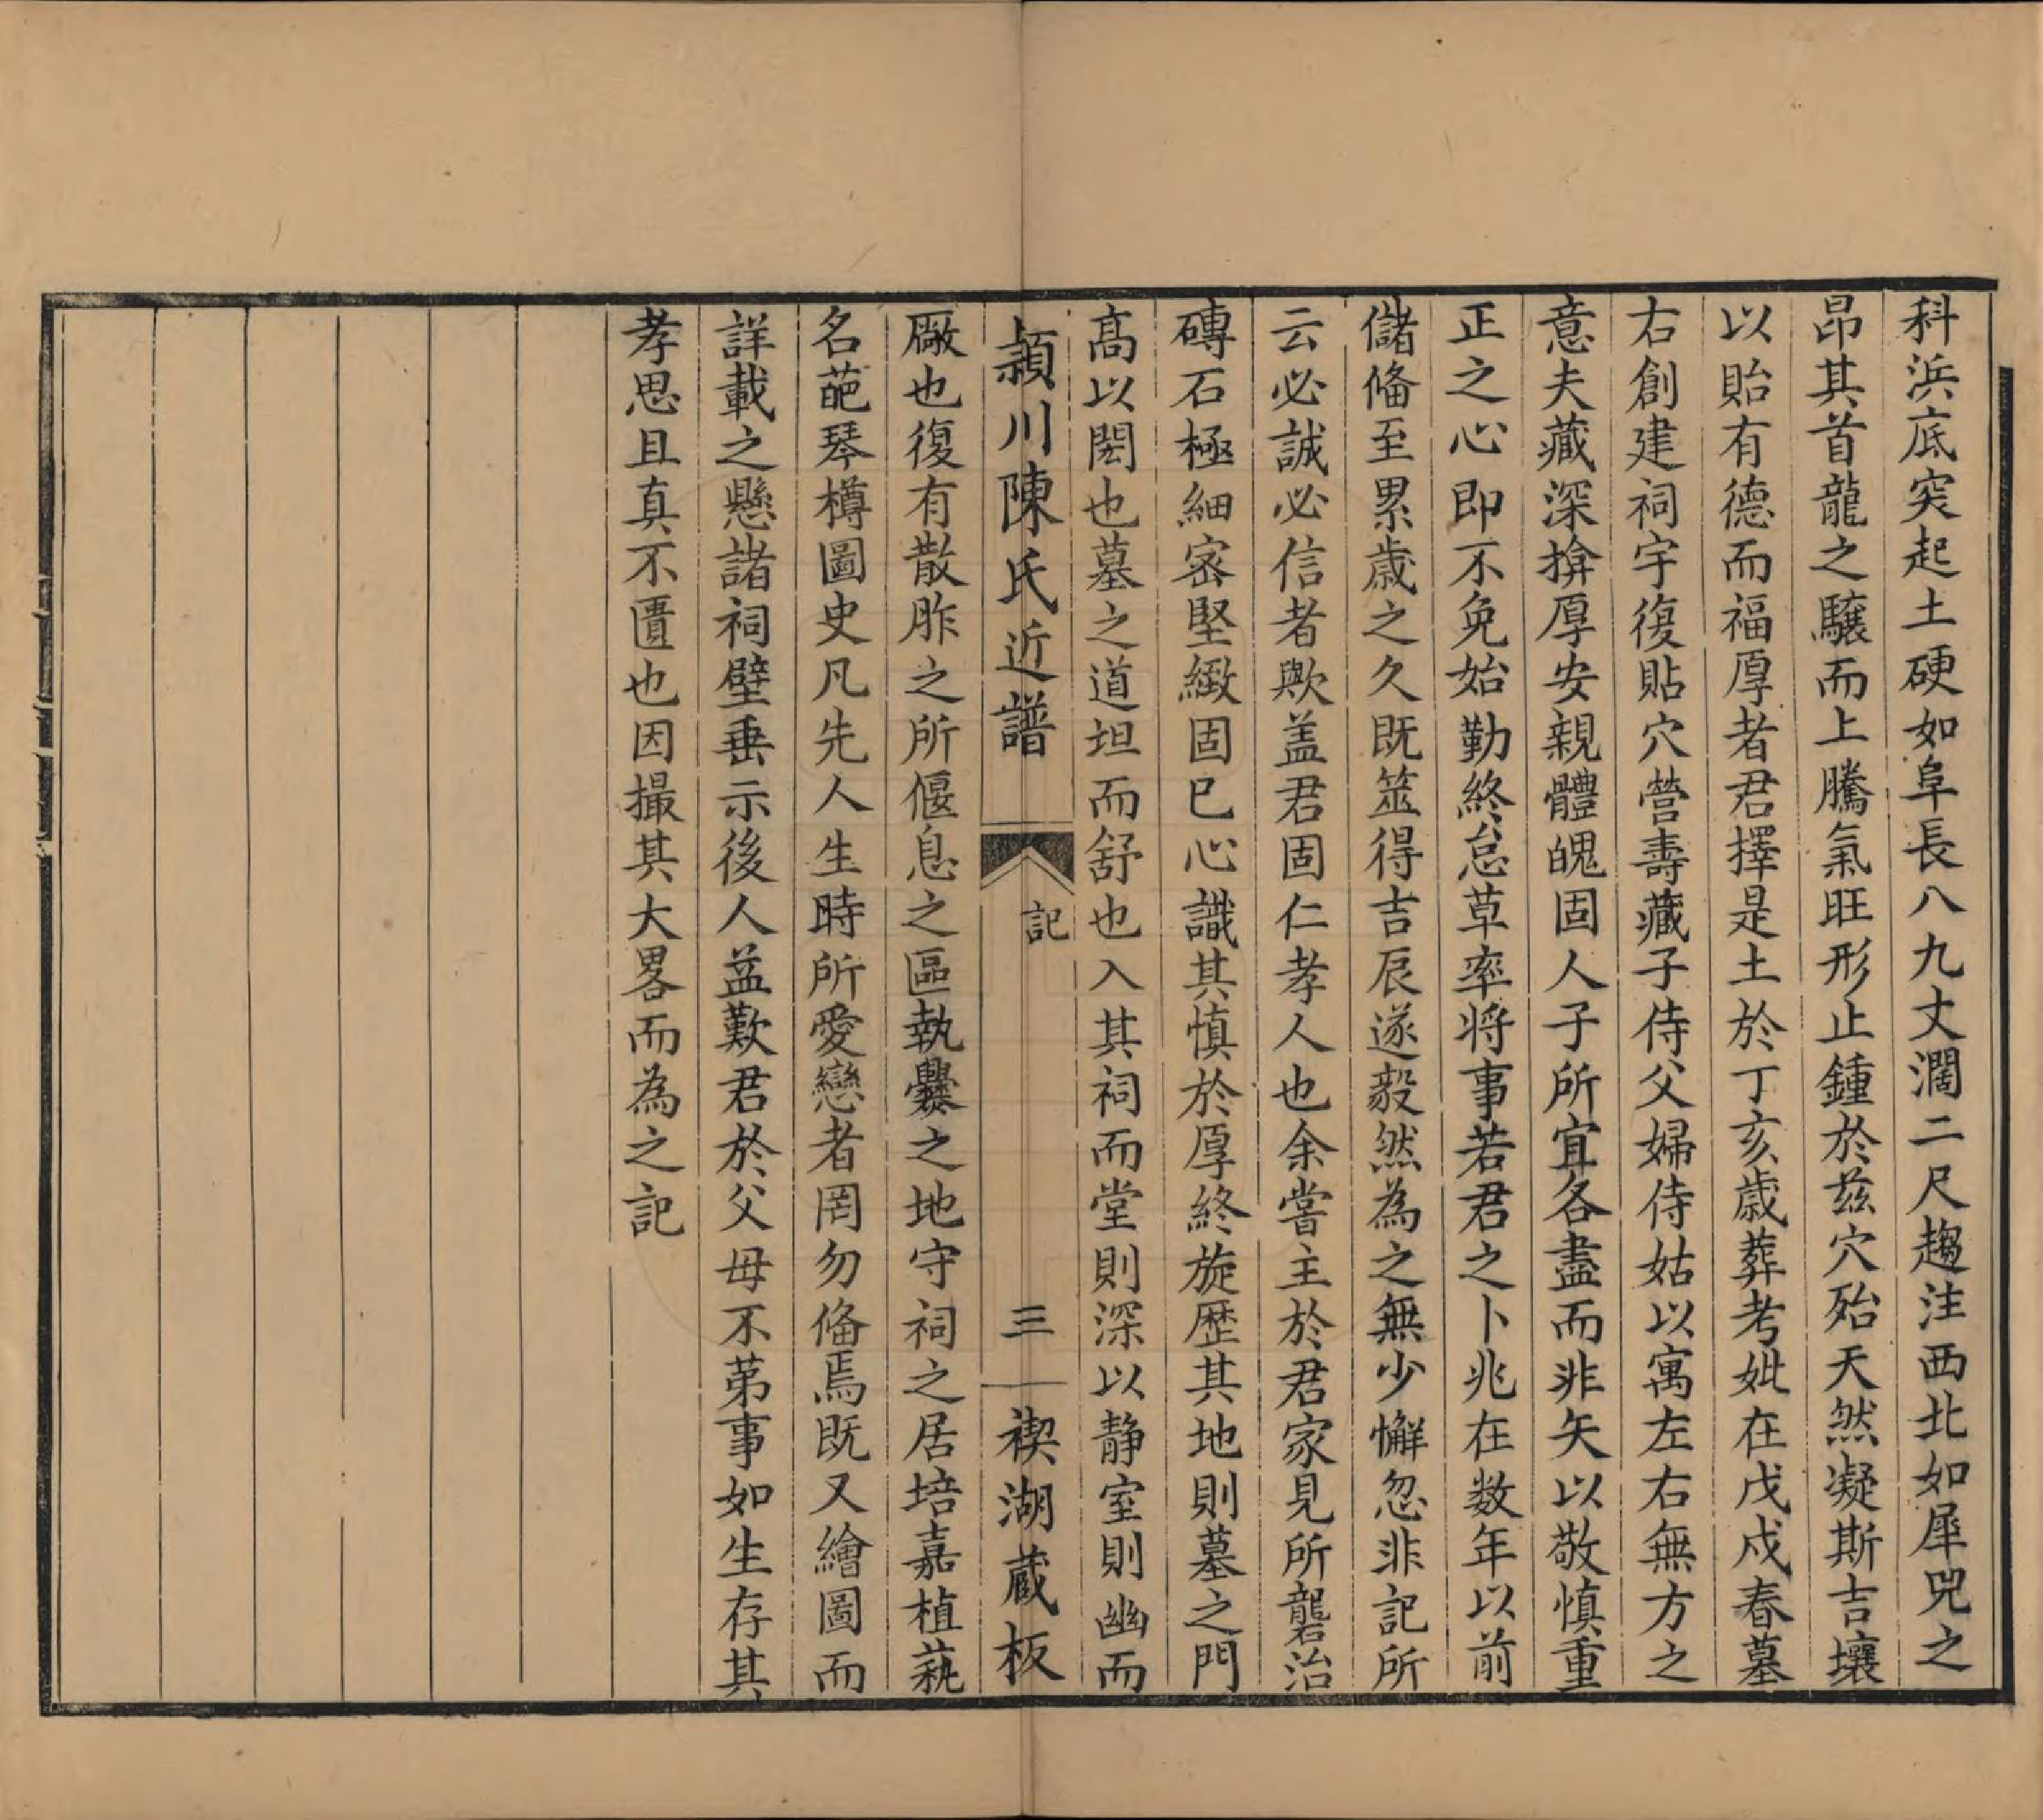 科浜底突起土硬如阜長八九丈濶二尺趨注西北如犀兕之
昂其首龍之驤而上騰氣旺形止鍾於茲穴殆天然凝斯吉壤
以貽有德而福厚者君擇是土於丁亥歲葬考妣在戊戌春墓
右創建祠宇復貼穴營壽藏子侍父婦侍姑以寓左右無方之
意夫藏深揜厚安親體魄固人子所宜各盡而非矢以敬慎重
正之心即不免始勤終怠草率將事若君之卜兆在数年以前
儲俻至累歲之久既筮得吉辰遂毅然為之無少懈忽非記所
云必誠必信者歟盖君固仁孝人也余嘗主於君家見所礱治
磚石極細宻堅緻固已心識其慎於厚終旋歴其地則墓之門
髙以閎也墓之道坦而舒也入其祠而堂則深以静室則幽而
潁川陳氏近譜 記 三 禊湖蔵板
厰也復有散胙之所偃息之區執爨之地守祠之居培嘉植蓺
名葩琴樽圖史凡先人生時所愛戀者罔勿俻焉既又繪圖而
詳載之懸諸祠壁垂示後人益歎君於父母不苐事如生存其
孝思且真不匱也因撮其大畧而為之記